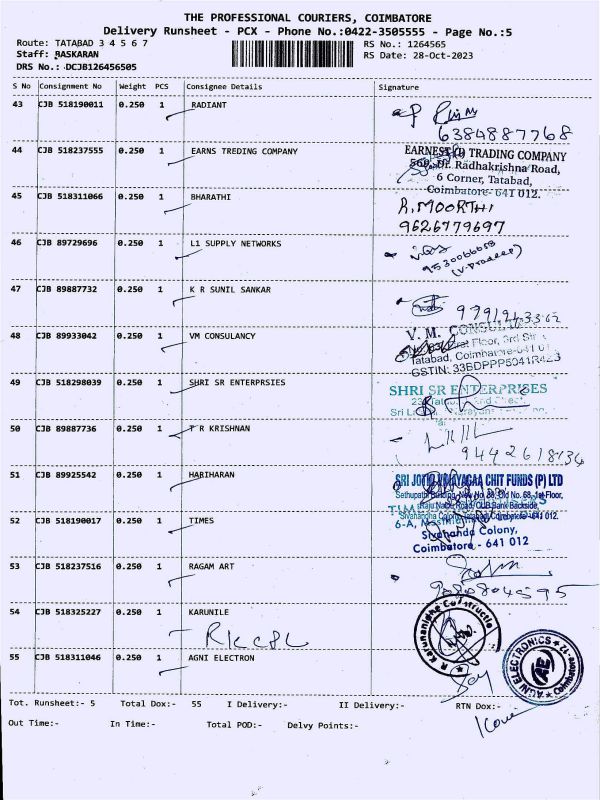 THE PROFESSIONAL COURIERS, COIMBATORE
Delivery Runsheet - PCX - Phone No.:0422-3505555 - Page No.:5
Route: TATABAD 3 4 5 6 7 RS No.: 1264565
Staff: BASKARAN RS Date: 28-Oct-2023
DRS No.: DCJB126456505
S No Consignment No Weight PCS Consignee Details Signature
43 CJB 518190011 0.250 1 RADIANT
6384887768
44 CJB 518237555 0.250 1 EARNS TREDING COMPANY
TRADING COMPANY
Dr. Radhakrishna Road,
6 Corner, Tatabad,
Coimbatore- 641 012.
45 CJB 518311066 0.250 1 BHARATHI
R.MOORTHI
9626779697
46 CJB 89729696 0.250 1 L1 SUPPLY NETWORKS
47 CJB 89887732 0.250 1 K R SUNIL SANKAR
48 CJB 89933042 0.250 1 VM CONSULANCY
V. M.
Floor, 3rd
Tatabad, Coimbatore-641
GSTIN: 33BDPPP5041R4
49 CJB 518298039 0.250 1 SHRI SR ENTERPRSIES
SHRI SR ENTERPRISES
50 CJB 89887736 0.250 1 T R KRISHNAN
51 CJB 89925542 0.250 1 HARIHARAN
SRI CHIT FUNDS (P) LTD
52 CJB 518190017 0.250 1 TIMES
Sivahanda Colony,
Coimbatore - 641 012
53 CJB 518237516 0.250 1 RAGAM ART
54 CJB 518325227 0.250 1 KARUNILE
55 CJB 518311046 0.250 1 AGNI ELECTRON
AGNI ELECTRONICS
Coimbatore-12
Tot. Runsheet:- 5 Total Dox:- 55 I Delivery:- II Delivery:- RTN Dox:-
Out Time:- In Time:- Total POD:- Delvy Points:-